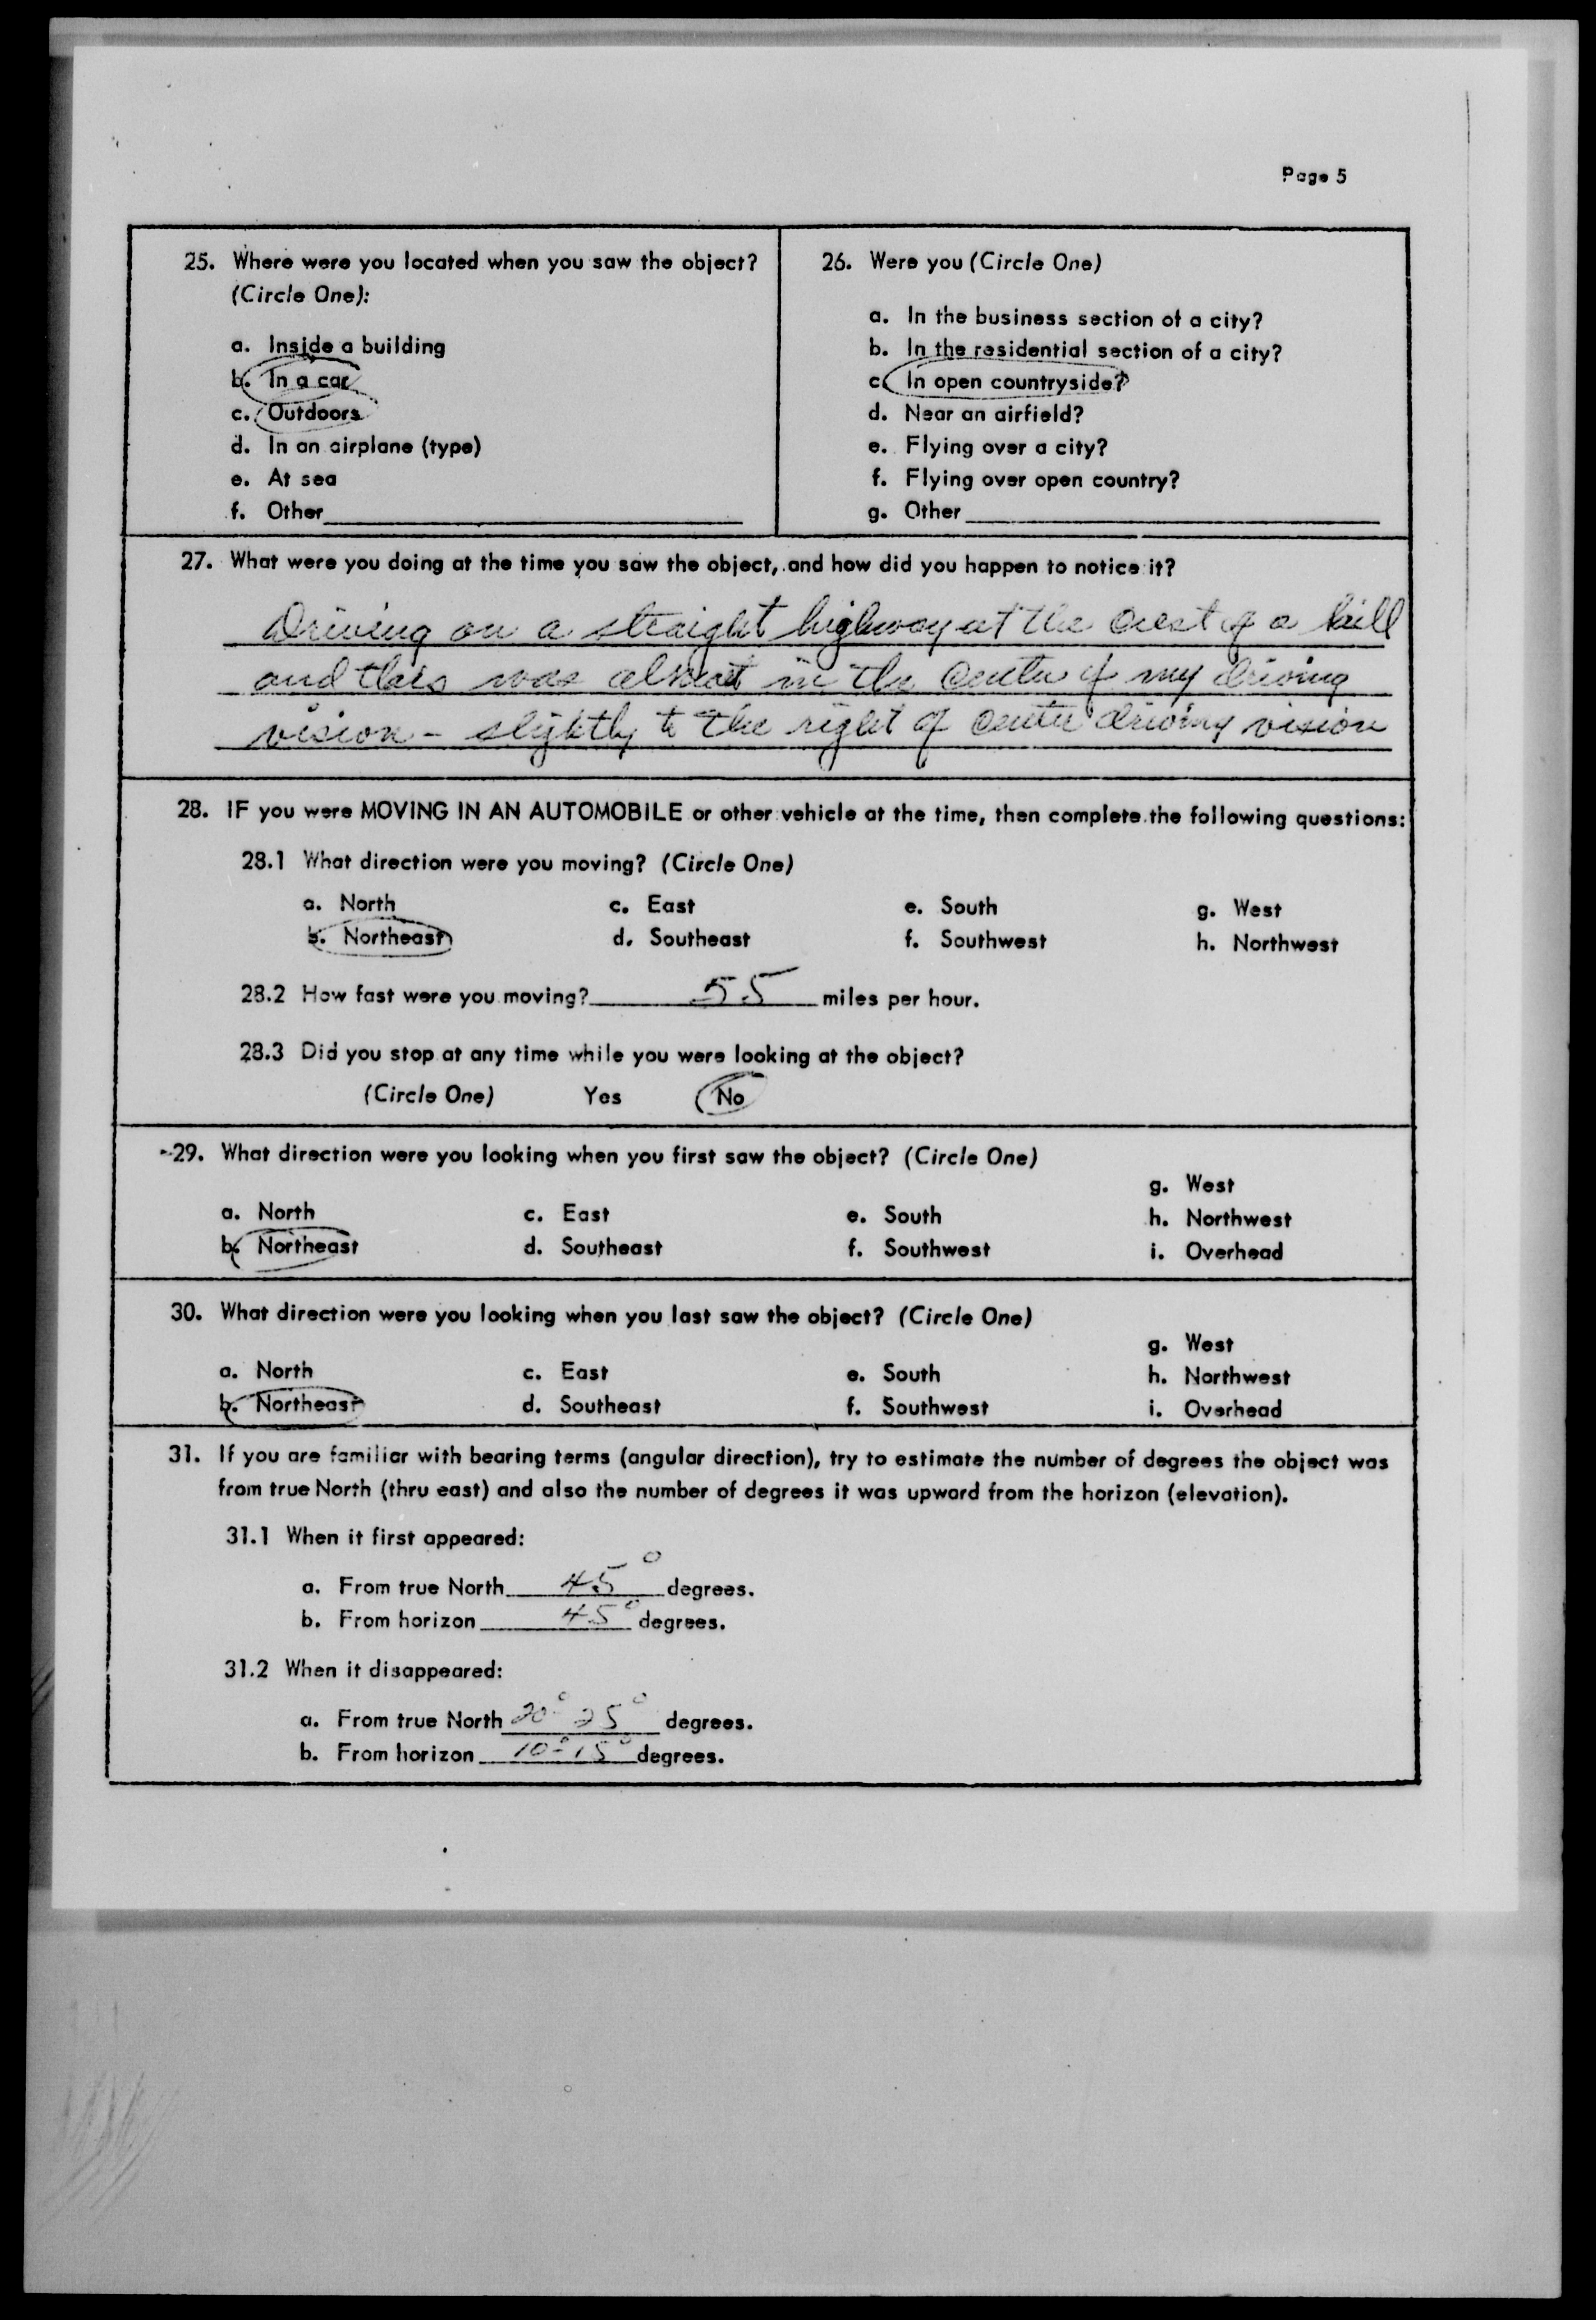 Page 5
25. Where were you located when you saw the object?
(Circle One):
a. Inside a building
b. In a car
c. Outdoors
d. In an airplane (type)
e. At sea
f. Other
26. Were you (Circle One)
a. In the business section of a city?
b. In the residential section of a city?
c. In open countryside?
d. Near an airfield?
e. Flying over a city?
f. Flying over open country?
g. Other
27. What were you doing at the time you saw the object, and how did you happen to notice it?
Driving on a straight highway at the crest of a hill
and this was almost in the center of my driving
vision - slightly to the right of center driving vision
28. IF you were MOVING IN AN AUTOMOBILE or other vehicle at the time, then complete the following questions:
28.1 What direction were you moving? (Circle One)
a. North c. East e. South g. West
b. Northeast d. Southeast f. Southwest h. Northwest
28.2 How fast were you moving? 55 miles per hour.
28.3 Did you stop at any time while you were looking at the object?
(Circle One) Yes No
29. What direction were you looking when you first saw the object? (Circle One)
g. West
a. North c. East e. South h. Northwest
b. Northeast d. Southeast f. Southwest i. Overhead
30. What direction were you looking when you last saw the object? (Circle One)
g. West
a. North c. East e. South h. Northwest
b. Northeast d. Southeast f. Southwest i. Overhead
31. If you are familiar with bearing terms (angular direction), try to estimate the number of degrees the object was
from true North (thru east) and also the number of degrees it was upward from the horizon (elevation).
31.1 When it first appeared:
a. From true North 45° degrees.
b. From horizon 45° degrees.
31.2 When it disappeared:
a. From true North 20° 25° degrees.
b. From horizon 10°-15° degrees.